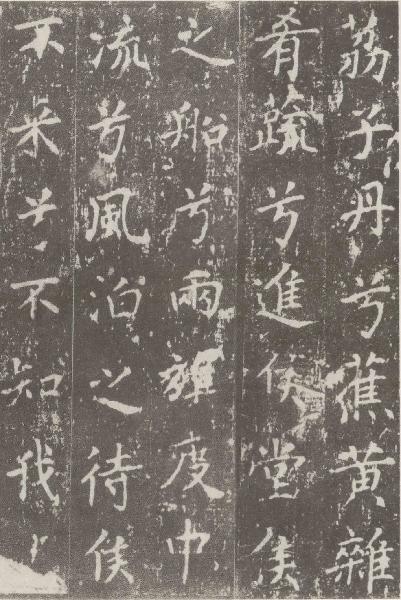 荔子丹兮蕉黃雜
肴蔬兮進侯堂侯
之船兮兩度中
流兮風泊之待侯
不來兮不知我